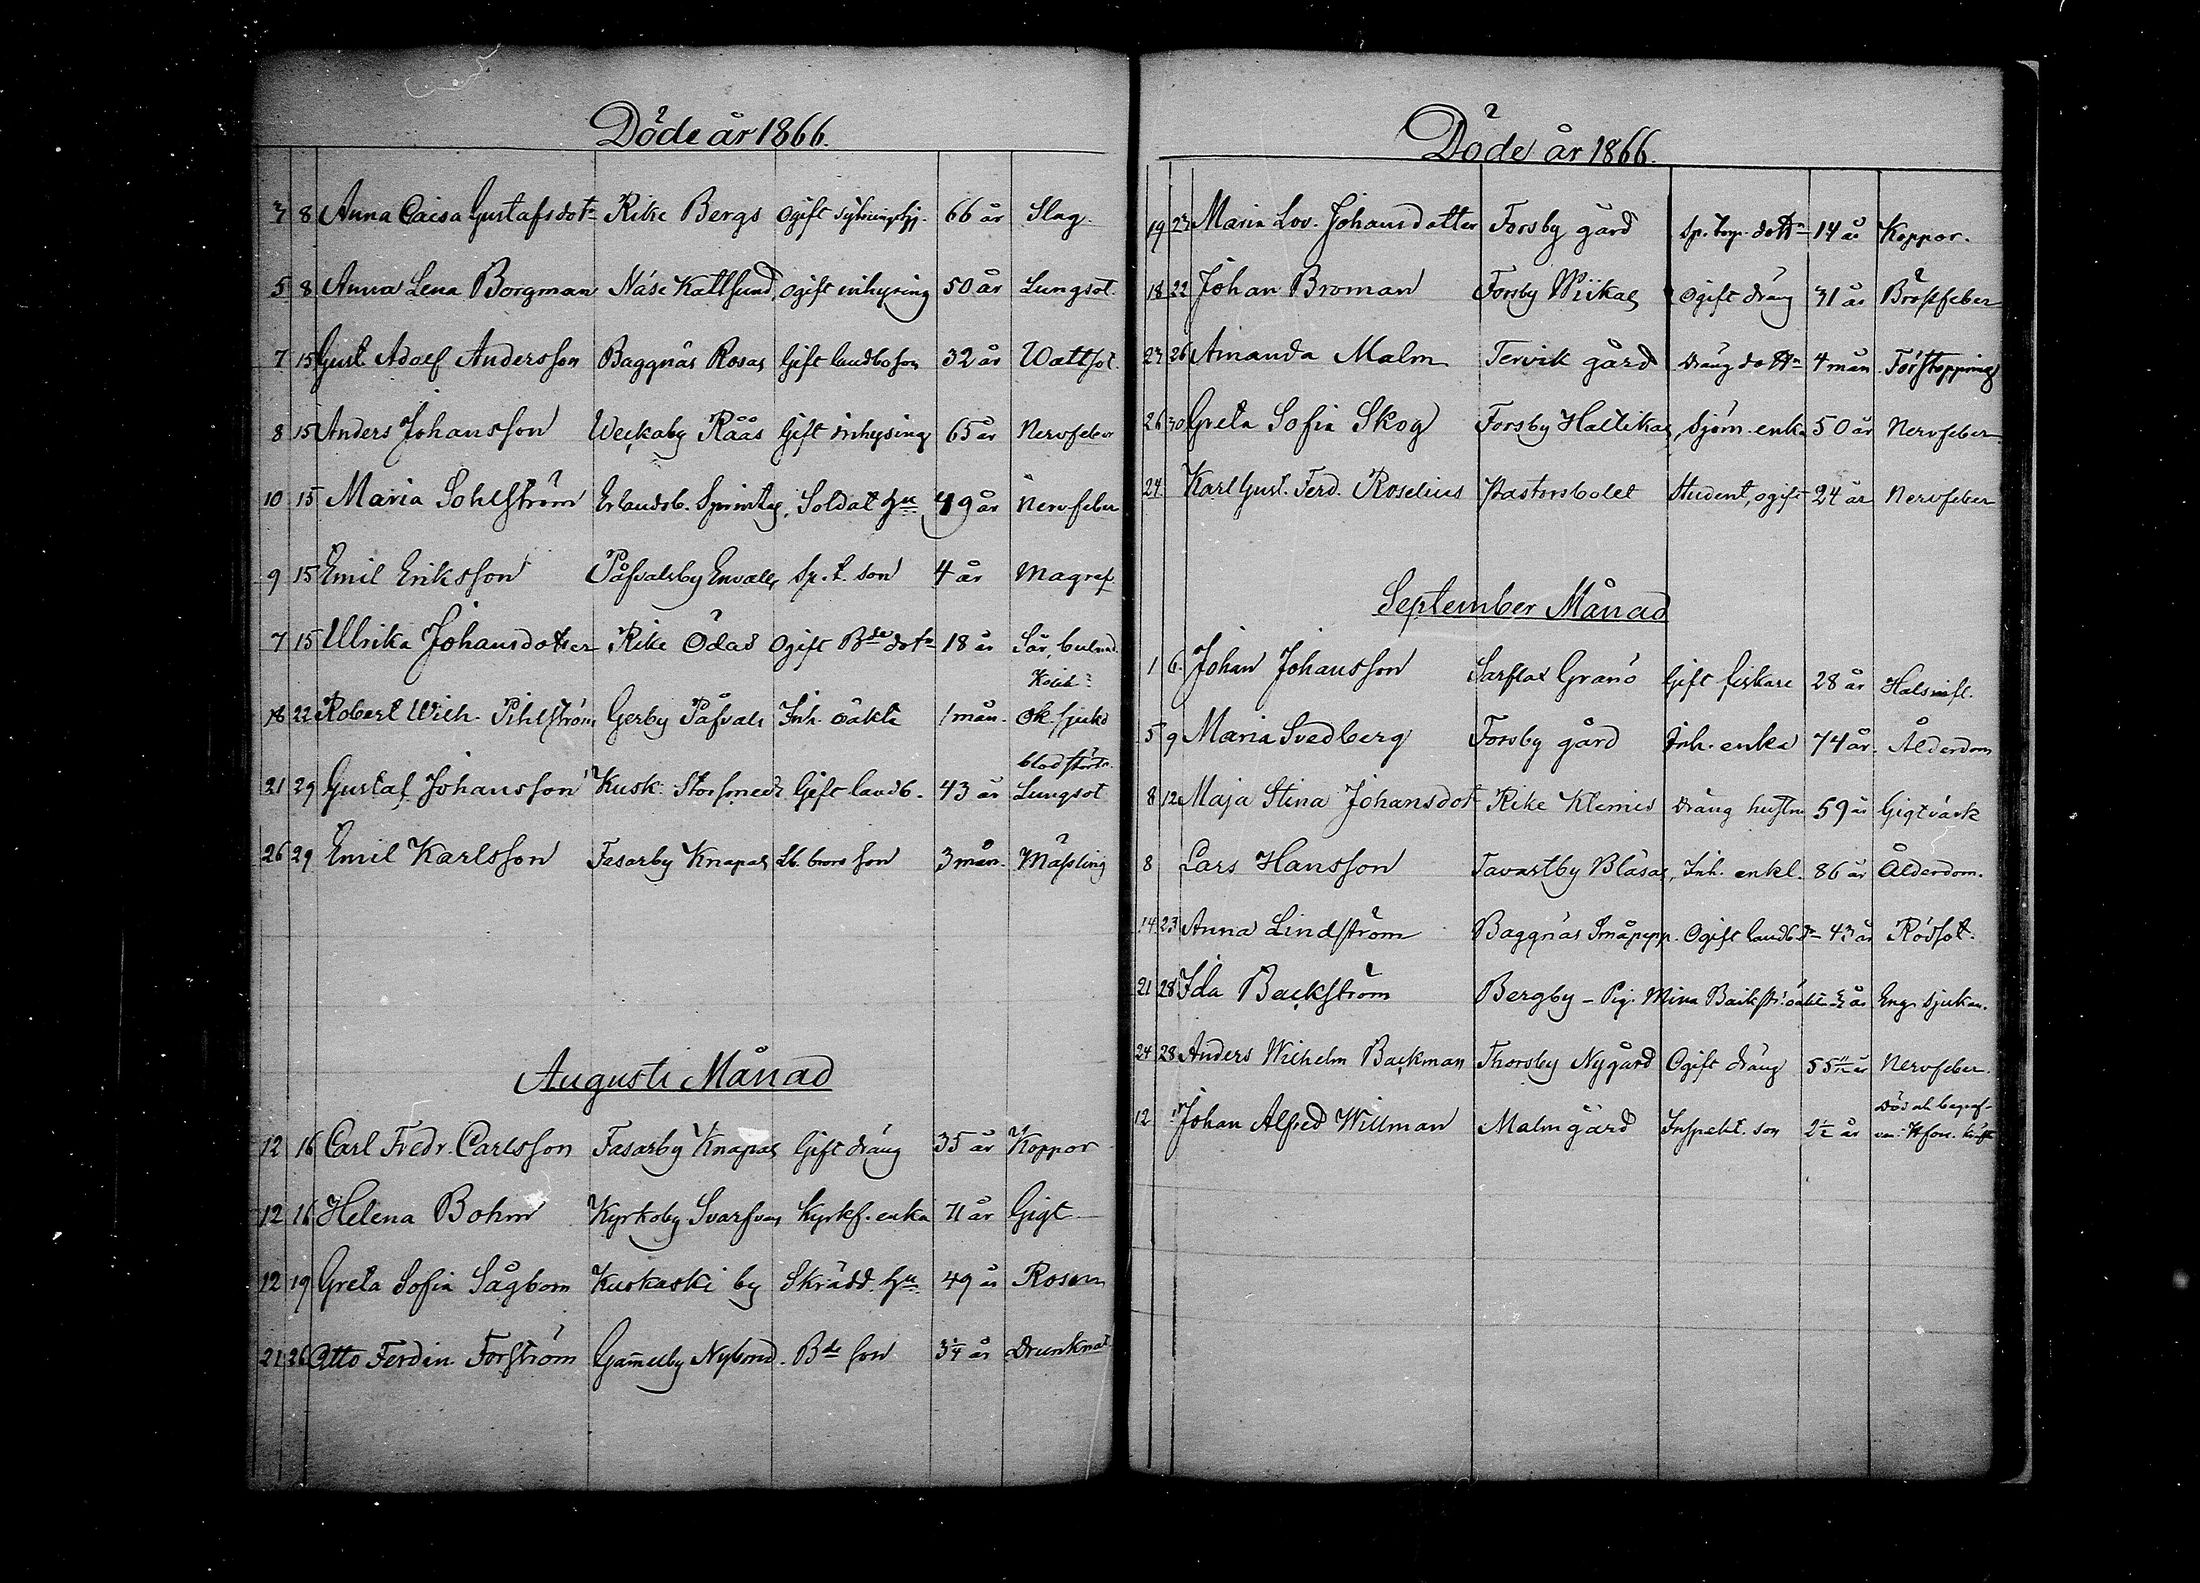 Döde år 1866.
3 8 Anna Caisa Gustafsdotr Rike Bergs ogift 66 år Slag
5 8 Anna Lena Borgman Näse Kattsund ogift inhysing 50 år Lungsot.
7 15 Gust. Adolf Andersson Baggnäs Rosas Gift landboson 32 år Wattsot.
8 15 Anders Johansson Weckaby Råås Gift inhysing 65 år Nervfeber
10 15 Maria Sohlström Erlandsb. Soldat hu 49 år Nervfeber
9 15 Emil Eriksson Påfvalsby Envalls Sp. t. son 4 år Magref
7 15 Ulrika Johansdotter Rike Ödas Ogift Bde dotr 18 år
18 22 Robert Wilh. Pihlström Gerby Påfvals Inh. oäkta 1 mån. Ok. sjukd
blodstört.
21 29 Gustaf Johansson Kusk. Storsmeds Gift landb. 43 år Lungsot
26 29 Emil Karlsson Fasarby Knapas Lb. brors son 3 mån. Mässling
Augusti Månad
12 16 Carl Fredr. Carlsson Fasarby Knapas Gift dräng 35 år Koppor
12 16 Helena Bohm Kyrkoby Svarfvas Kyrkf. enka 71 år Gigt
12 19 Greta Sofia Sågbom Kuskoski by Skrädd. hu 49 år Rosen
21 26 Otto Ferdin. Forström Gamelby Nybond. Bde son 3 1/4 år Drunknat
Döde år 1866.
19 22 Maria Lov. Johansdotter Forsby gård Sp. torp. dottr 14 år Koppor.
18 22 Johan Broman Forsby Wiikas Ogift dräng 31 år Bröstfeber
23 26 Amanda Malm Tervik gård Dräng dottr 4 mån Förstoppning
26 30 Greta Sofia Skog Forsby Hallikas, Sjöm. enka 50 år Nervfeber
24 Karl Gust. Ferd. Roselius Pastorsbolet Student, ogift 24 år Nervfeber
September Månad
1 6. Johan Johansson Sarflax Granö Gift fiskare 28 år Halsinfl.
5 9 Maria Svedberg Forsby gård Inh. enka 74 år. Ålderdom
8 12 Maja Stina Johansdotr Rike Klemis Dräng hustru 59 år Gigtvärk
8 Lars Hansson Tavastby Blåsas, Inh. enkl. 86 år Ålderdom.
14 23 Anna Lindström Baggnäs Småpepp. Ogift landb. dr 43 år Rödsot.
21 28 Ida Backström Bergby - Pig. Mina Backstr: oäkt. år Eng. sjukan.
24 28 Anders Wilhelm Backman Thorsby Nygård Ogift dräng 55 år Nervfeber.
12 Johan Alfred Willman Malmgård Inspekt. son 2 1/2 år Död och begraf-
ven i Hfors.